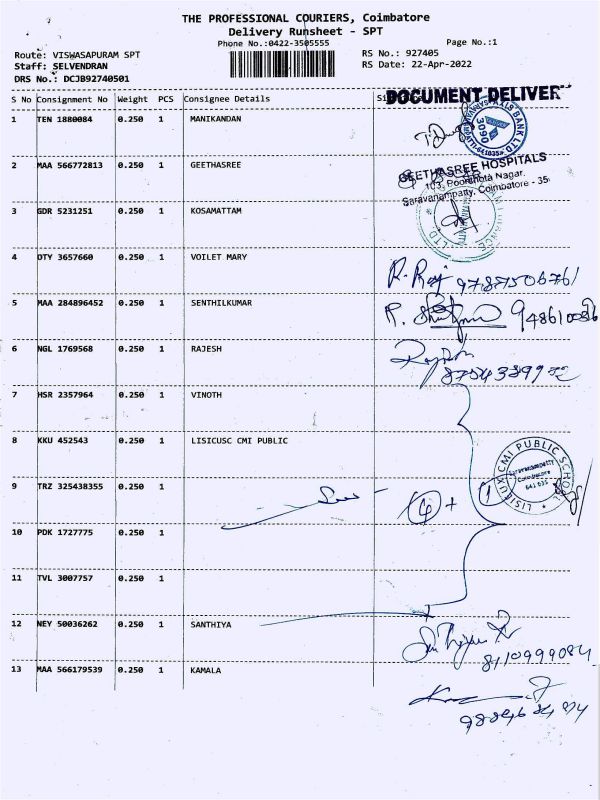 THE PROFESSIONAL COURIERS, Coimbatore
Delivery Runsheet - SPT
Phone No.:0422-3505555
Page No.:1
Route: VISWASAPURAM SPT
RS No.: 927405
Staff: SELVENDRAN
RS Date: 22-Apr-2022
DRS No.: DCJB92740501
S No Consignment No Weight PCS Consignee Details
DOCUMENT DELIVER
1 TEN 1880084 0.250 1 MANIKANDAN
AXIS BANK LTD
3090
2 MAA 566772813 0.250 1 GEETHASREE
GEETHASREE HOSPITALS
103, Poornhota Nagar,
Saravanampatty, Coimbatore - 35
3 GDR 5231251 0.250 1 KOSAMATTAM
4 OTY 3657660 0.250 1 VOILET MARY
R. Raj 9787506761
5 MAA 284896452 0.250 1 SENTHILKUMAR
6 NGL 1769568 0.250 1 RAJESH
7 HSR 2357964 0.250 1 VINOTH
8 KKU 452543 0.250 1 LISICUSC CMI PUBLIC
LISIEUX CMI PUBLIC SCHOOL
Saravanampatty
Coimbatore
641 035
9 TRZ 325438355 0.250 1
+ 1
10 PDK 1727775 0.250 1
11 TVL 3007757 0.250 1
12 NEY 50036262 0.250 1 SANTHIYA
8110999084
13 MAA 566179539 0.250 1 KAMALA